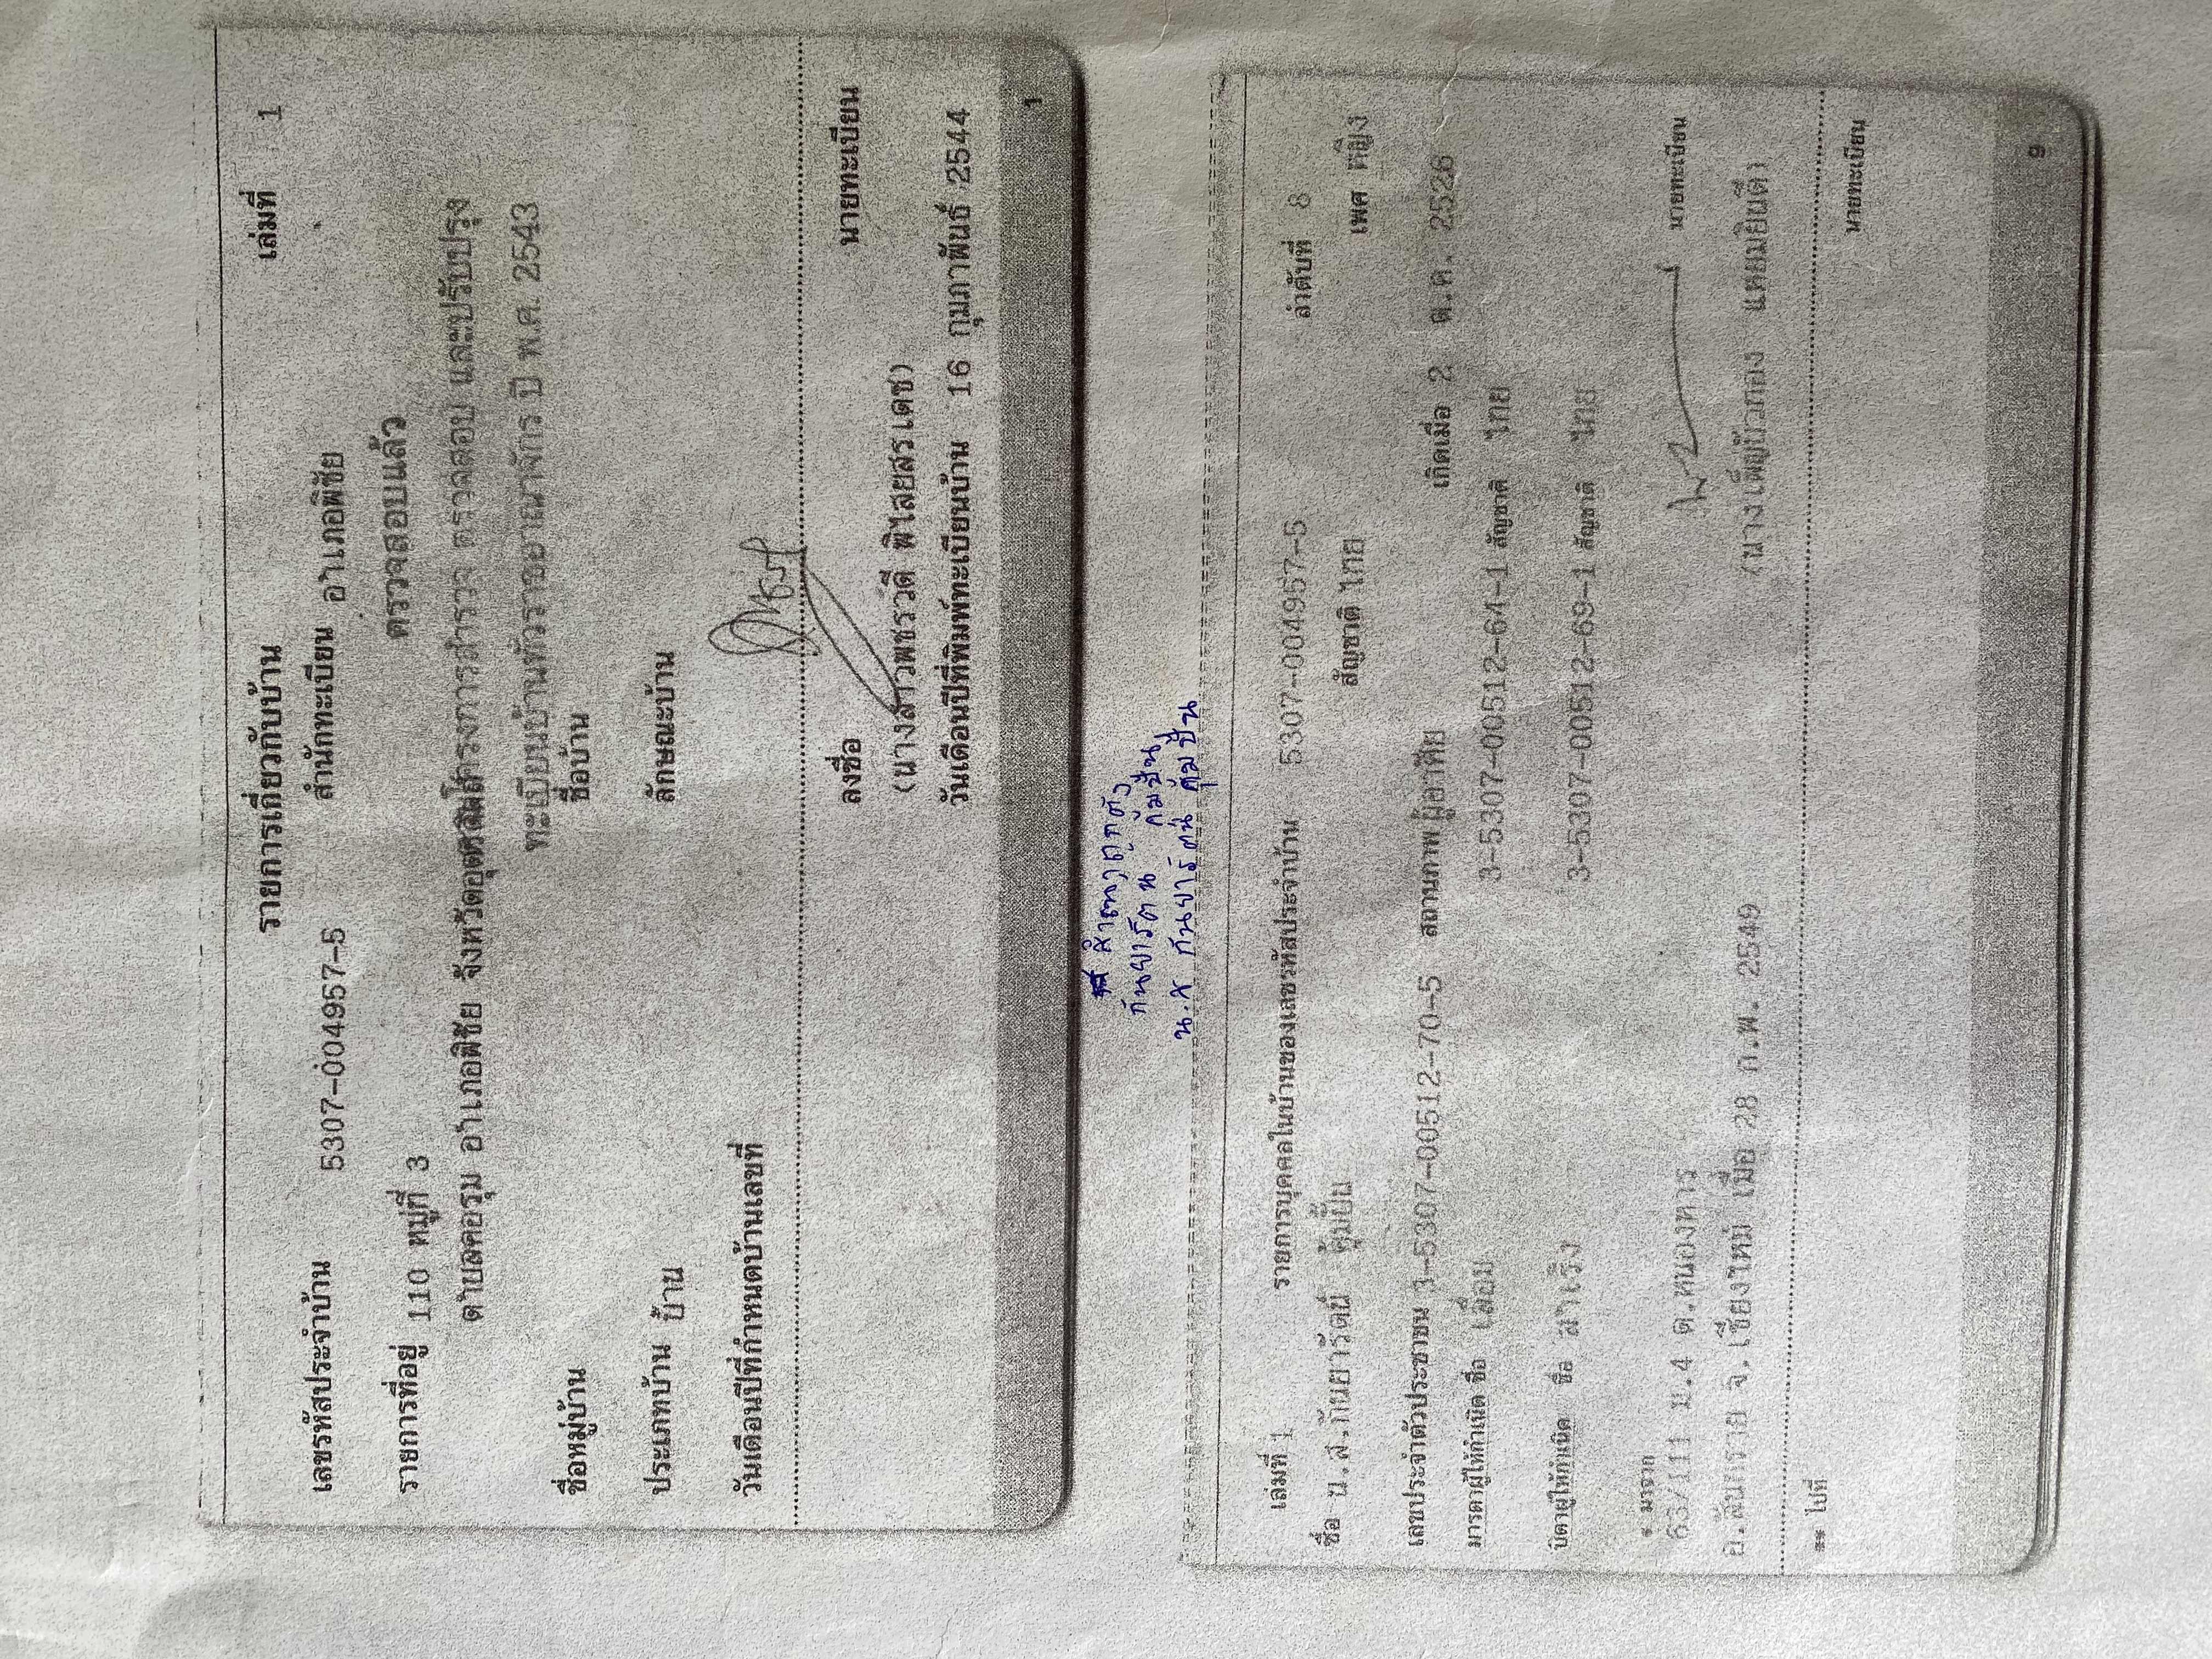 รายการเกี่ยวกับบ้าน เล่มที่ 1
เลขรหัสประจำบ้าน 5307-004957-5 สำนักทะเบียน อำเภอพิชัย
รายการที่อยู่ 110 หมู่ที่ 3 ตรวจสอบแล้ว
ตำบลคอรุม อำเภอพิชัย จังหวัดอุตรดิตถ์ โครงการสำรวจ ตรวจสอบ และปรับปรุง
ทะเบียนบ้านทั่วราชอาณาจักร ปี พ.ศ. 2543
ชื่อหมู่บ้าน ชื่อบ้าน
ประเภทบ้าน บ้าน ลักษณะบ้าน
วันเดือนปีที่กำหนดบ้านเลขที่
ลงชื่อ นายทะเบียน
(นางสาวพชรวดี พิไสยสรเดช)
วันเดือนปีที่พิมพ์ทะเบียนบ้าน 16 กุมภาพันธ์ 2544
1
สำเนาถูกต้อง
กันยารัตน์ คุ้มปั้น
น.ส กันยารัตน์ คุ้มปั้น
เล่มที่ 1 รายการบุคคลในบ้านของเลขรหัสประจำบ้าน 5307-004957-5 ลำดับที่ 8
ชื่อ น.ส.กันยารัตน์ คุ้มปั้น สัญชาติ ไทย เพศ หญิง
เลขประจำตัวประชาชน 3-5307-00512-70-5 สถานภาพ ผู้อาศัย เกิดเมื่อ 2 ต.ค. 2526
มารดาผู้ให้กำเนิด ชื่อ เลื่อม 3-5307-00512-64-1 สัญชาติ ไทย
บิดาผู้ให้กำเนิด ชื่อ สำเริง 3-5307-00512-69-1 สัญชาติ ไทย
* มาจาก
63/111 ม.4 ต.หนองหาร นายทะเบียน
อ.สันทราย จ.เชียงใหม่ เมื่อ 28 ก.พ. 2549
** ไปที่ นายทะเบียน
9